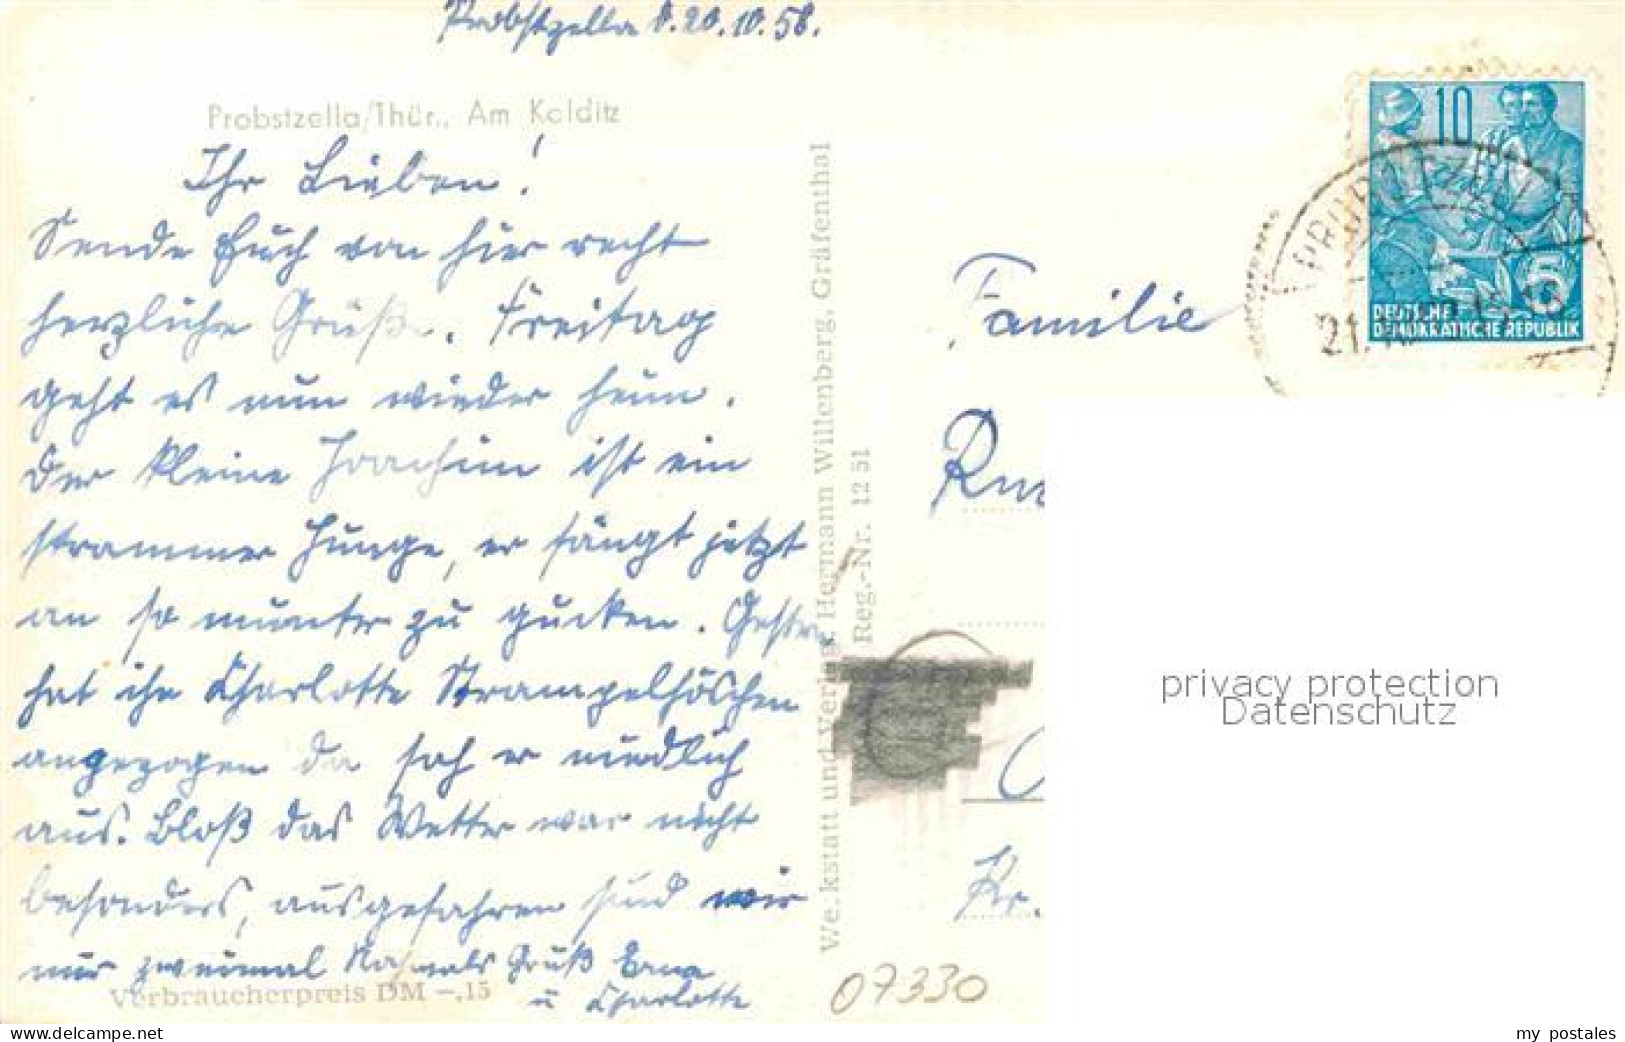 Probstzella d. 20.10.56.
Probstzella/Thür., Am Kolditz
Ihr Lieben!
Sende Euch von hier recht
herzliche Grüße. Freitag
geht es nun wieder heim.
Der kleine Joachim ist ein
strammer Junge, er fängt jetzt
an so munter zu gucken. Gestern
hat ihn Charlotte Strampelhöschen
angezogen da sah er niedlich
aus. Bloß das Wetter war nicht
besonders, ausgefahren sind wir
nur zweimal Nochmals Gruß Erna
u Charlotte
Verbraucherpreis DM -,15
Werkstatt und Verlag, Hermann Willenberg, Gräfenthal
Reg.-Nr. 12 51
10
5
DEUTSCHE
DEMOKRATISCHE REPUBLIK
PROBSTZELLA
21.
Familie
Kr.
07330
privacy protection
Datenschutz
my postales
www.delcampe.net